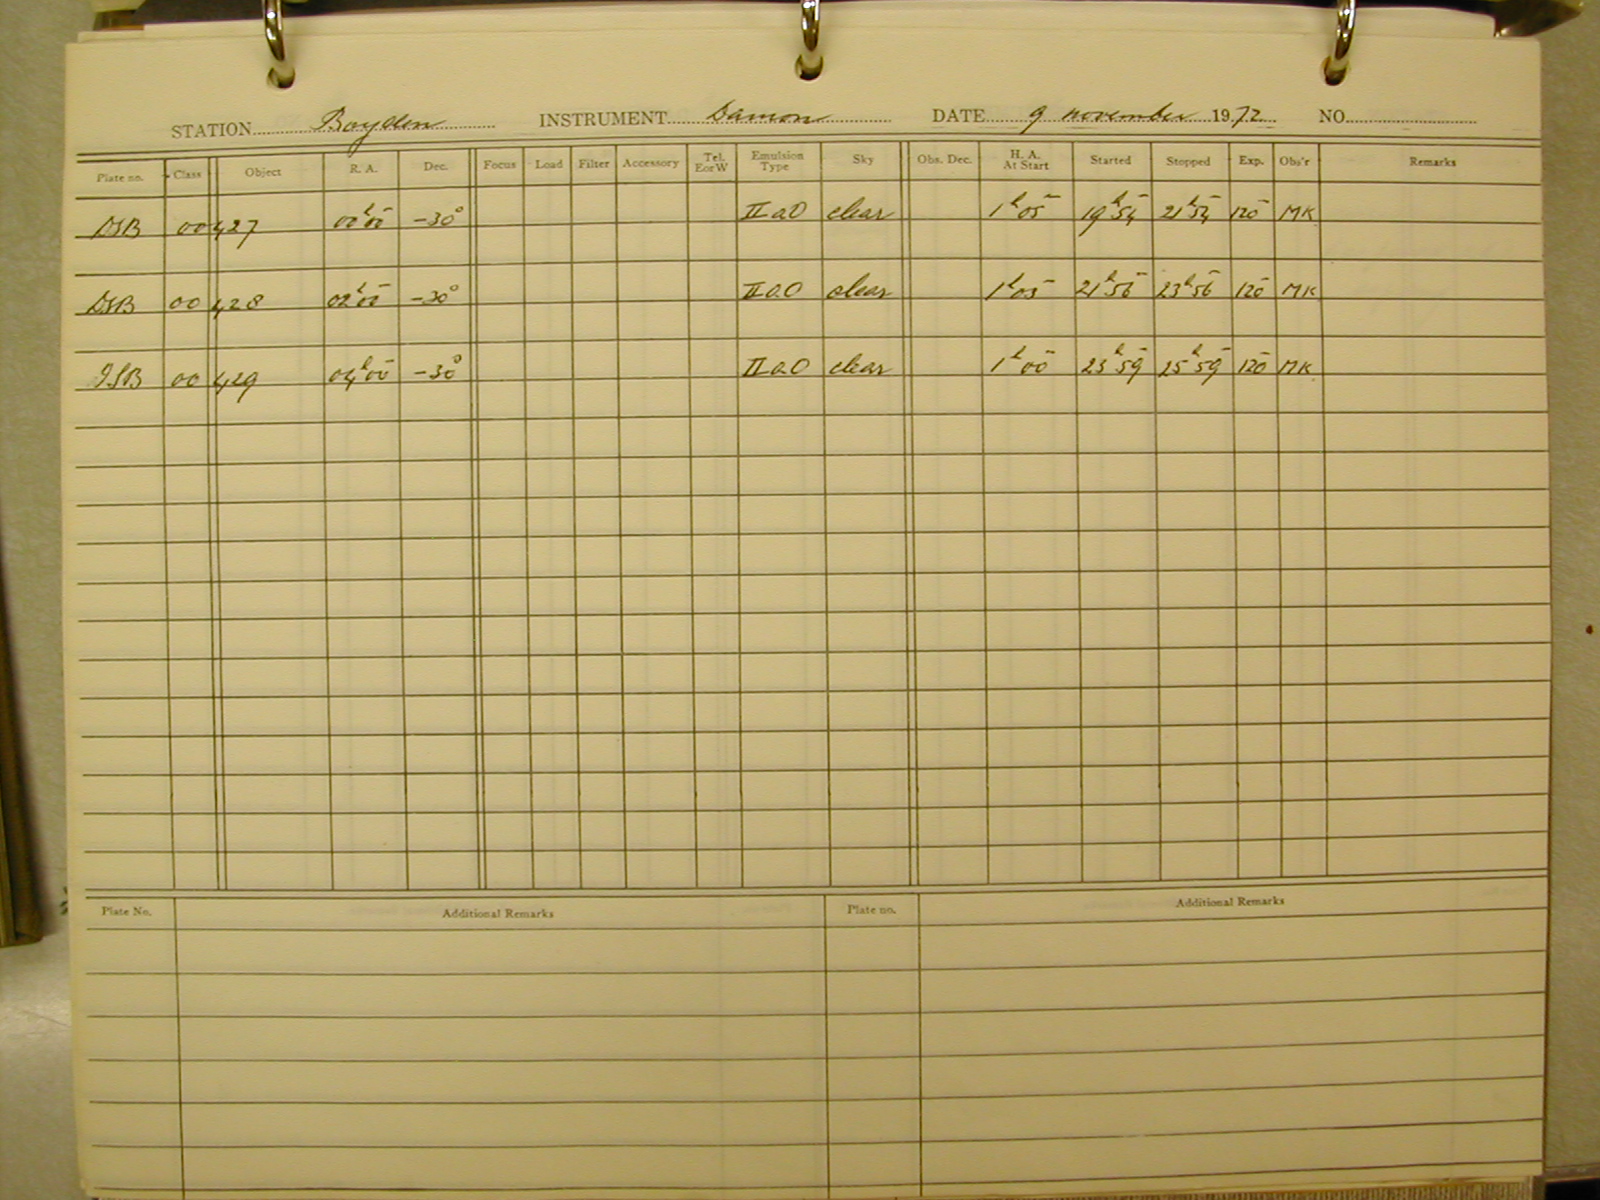 STATION Boyden INSTRUMENT Damon DATE 9 november 1972 NO.
Plate no. Class Object R. A. Dec. Focus Load Filter Accessory Tel. E or W Emulsion Type Sky Obs. Dec. H. A. At Start Started Stopped Exp. Obs'r Remarks
DSB 00427 00h00m -30° IIaO clear 1h05m 19h54m 21h54m 120m MK
DSB 00428 02h00m -30° IIaO clear 1h05m 21h56m 23h56m 120m MK
DSB 00429 04h00m -30° IIaO clear 1h00m 23h59m 25h59m 120m MK
Plate No. Additional Remarks Plate no. Additional Remarks